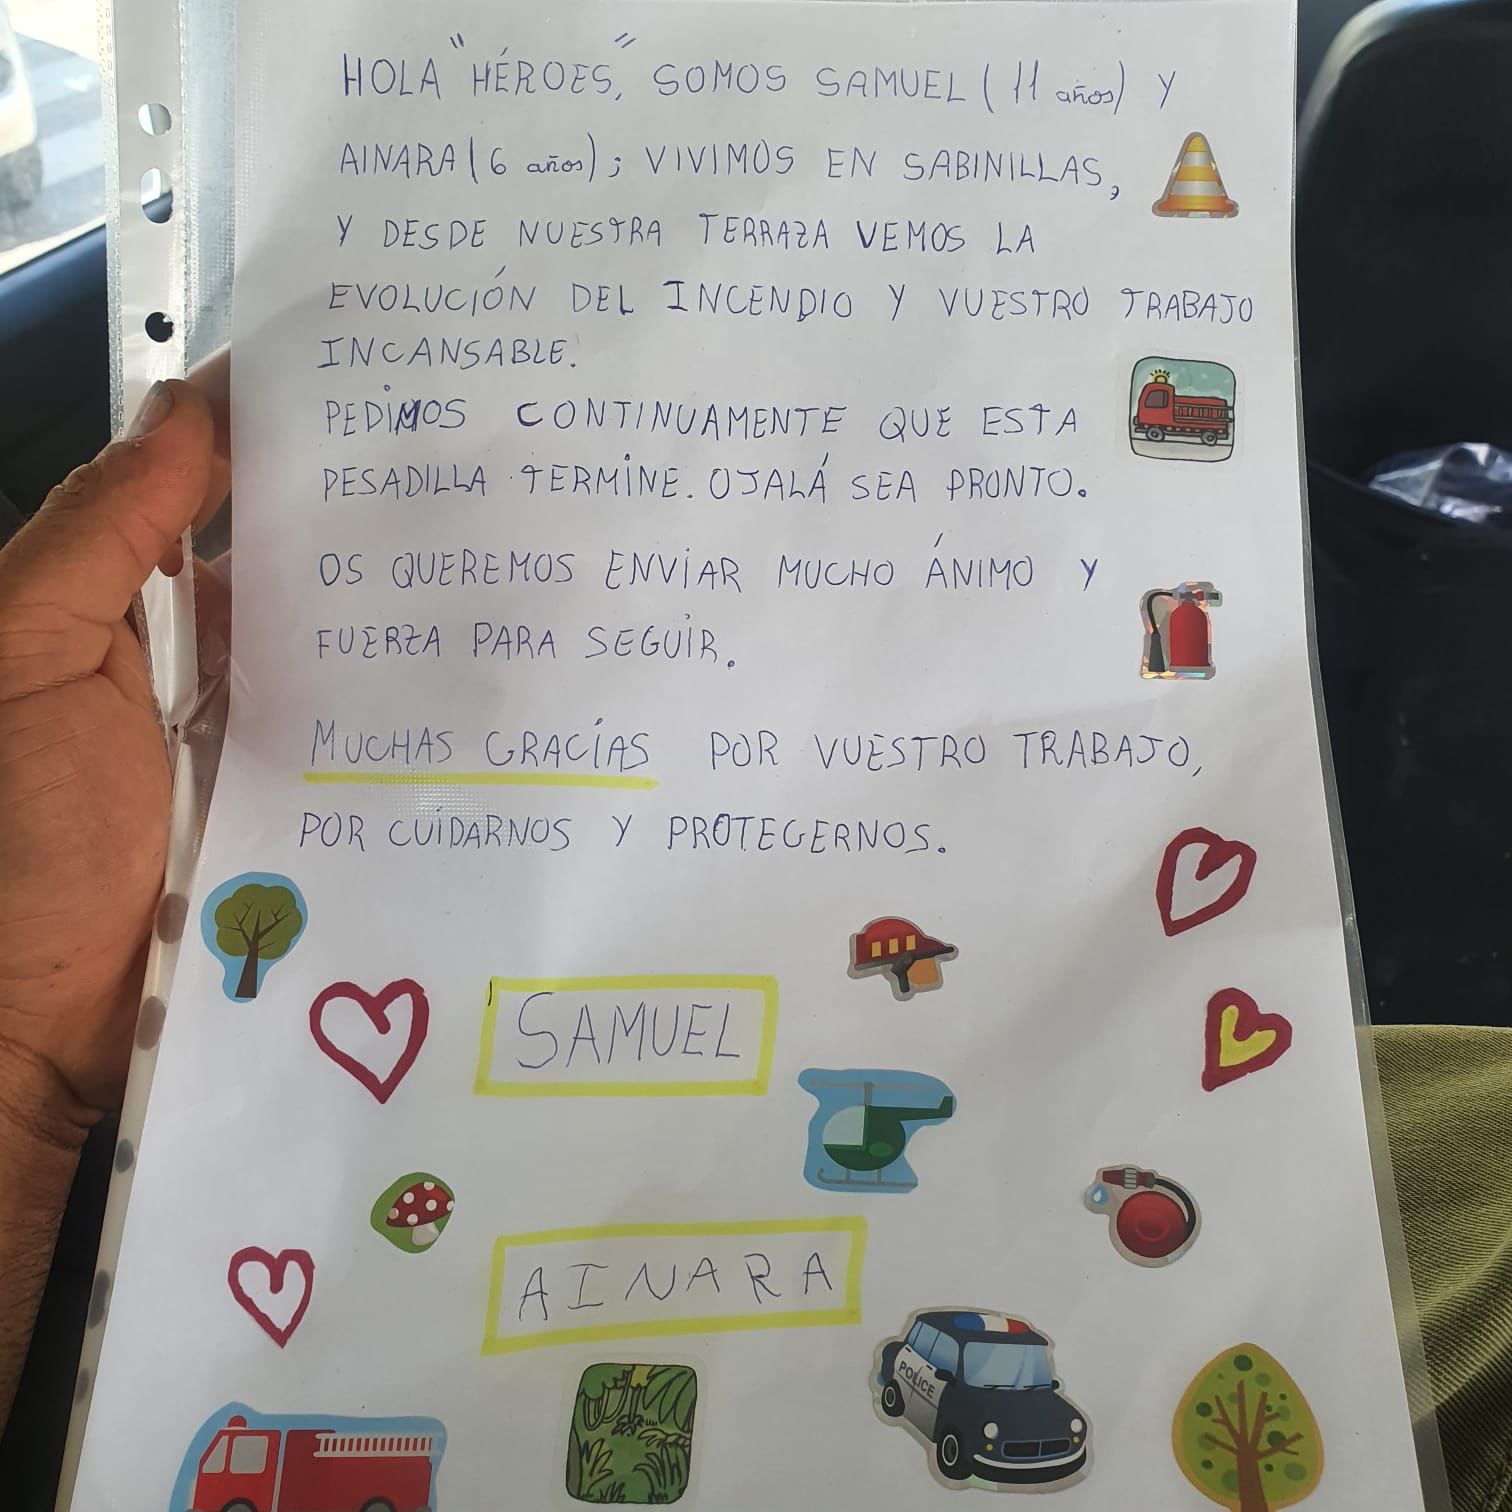 HOLA "HÉROES," SOMOS SAMUEL (11 años) Y
AINARA (6 años); VIVIMOS EN SABINILLAS,
Y DESDE NUESTRA TERRAZA VEMOS LA
EVOLUCIÓN DEL INCENDIO Y VUESTRO TRABAJO
INCANSABLE.
PEDIMOS CONTINUAMENTE QUE ESTA
PESADILLA TERMINE. OJALÁ SEA PRONTO.
OS QUEREMOS ENVIAR MUCHO ÁNIMO Y
FUERZA PARA SEGUIR.
MUCHAS GRACIAS POR VUESTRO TRABAJO,
POR CUIDARNOS Y PROTEGERNOS.
SAMUEL
AINARA
POLICE